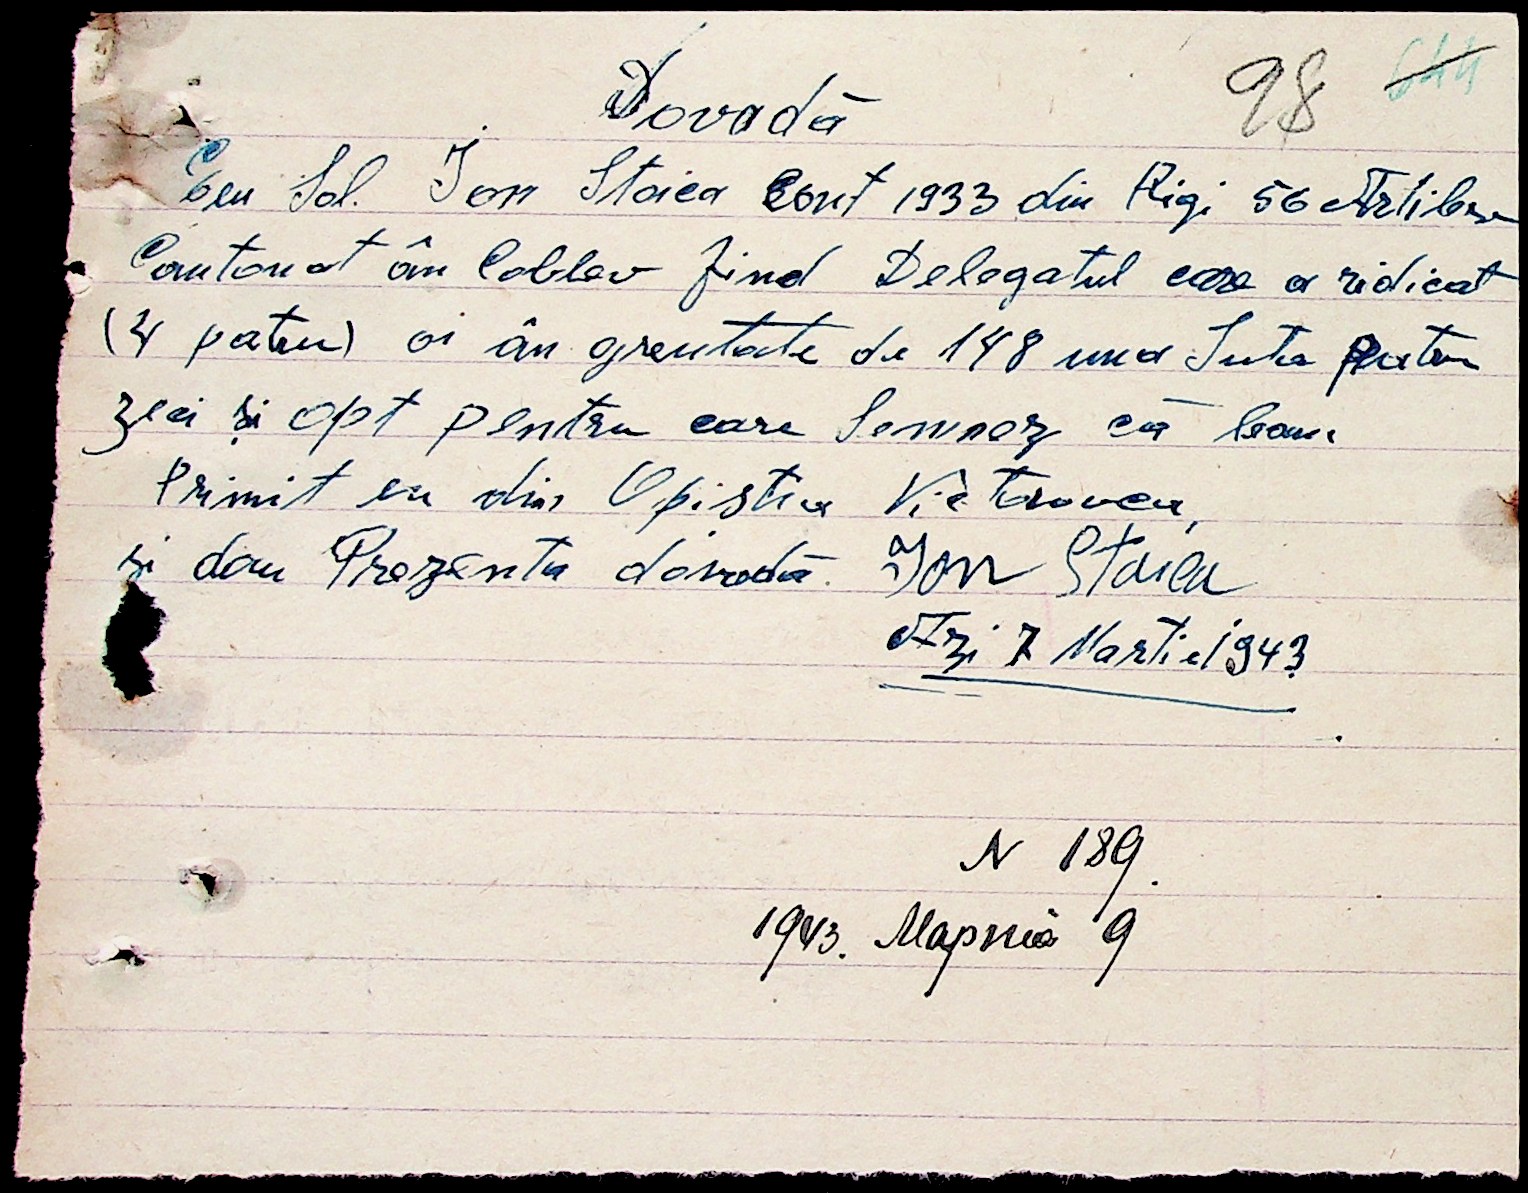 98 644
Dovadă
Eu Sol. Ion Stoica Cont 1933 din Rigi 56 Artilerie
Cantonat ân Coblev fiind Delegatul care a ridicat
(4 patru) oi ân greutate de 148 una Suta patru
zeci și opt pentru care Semnez că leam
Primit eu din Opistia Victorovca,
și dau Prezenta dovadă. Ion Stoica
Azi 7 Martie 1943
N 189.
1943. Мартiа 9